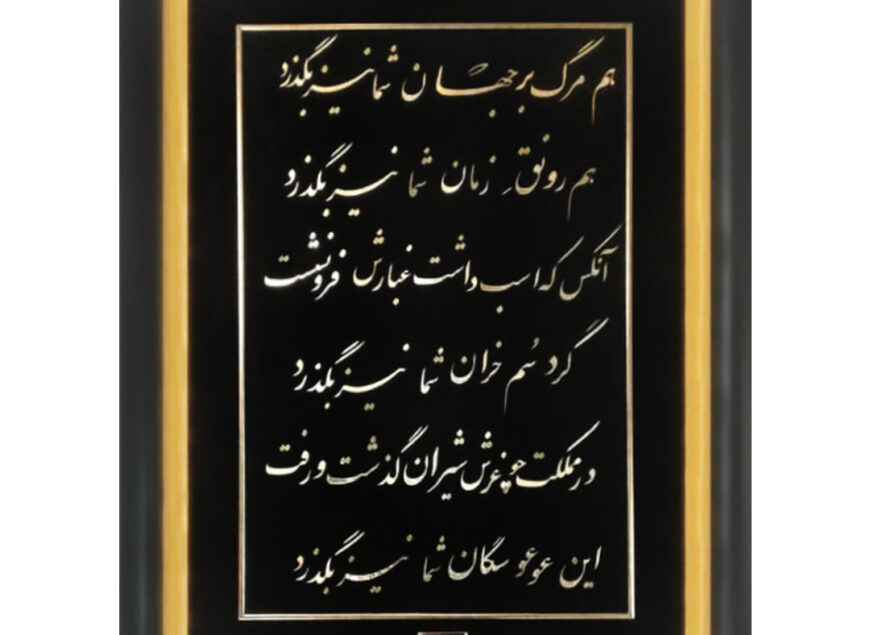 هم مرگ بر جهان شما نیز بگذرد
هم رونق زمان شما نیز بگذرد
آنکس که اسب داشت غبارش فرونشست
گرد سُم خران شما نیز بگذرد
در مملکت چو غرش شیران گذشت و رفت
این عوعو سگان شما نیز بگذرد